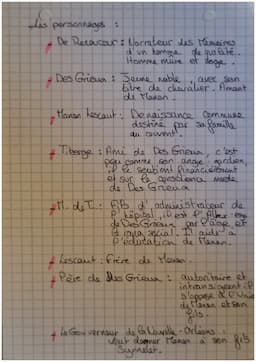 Les personnages :
De Renoncour : Narrateur des Mémoires
d'un homme de qualité.
Homme mûre et sage.
Des Grieux : Jeune noble, avec son
titre de chevalier. Amant
de Manon.
Manon Lescaut : De naissance commune
destiné par sa famille
au couvent.
Tiberge : Ami de Des Grieux, c'est
peu comme son ange gardien,
il le soutient financièrement
et sur la conscience morale
de Des Grieux
M. de T : Fils d'administrateur de
l'hôpital, il est l'alter-ego
de Des Grieux par l'âge et
le rang social. Il aide à
l'éducation de Manon.
Lescaut : Frère de Manon.
Père de Des Grieux : autoritaire et
intransigeant, il
s'oppose à
de Manon et son
fils.
Le Gouverneur de la Nouvelle-Orléans :
veut donner Manon à son fils
Synnelet.